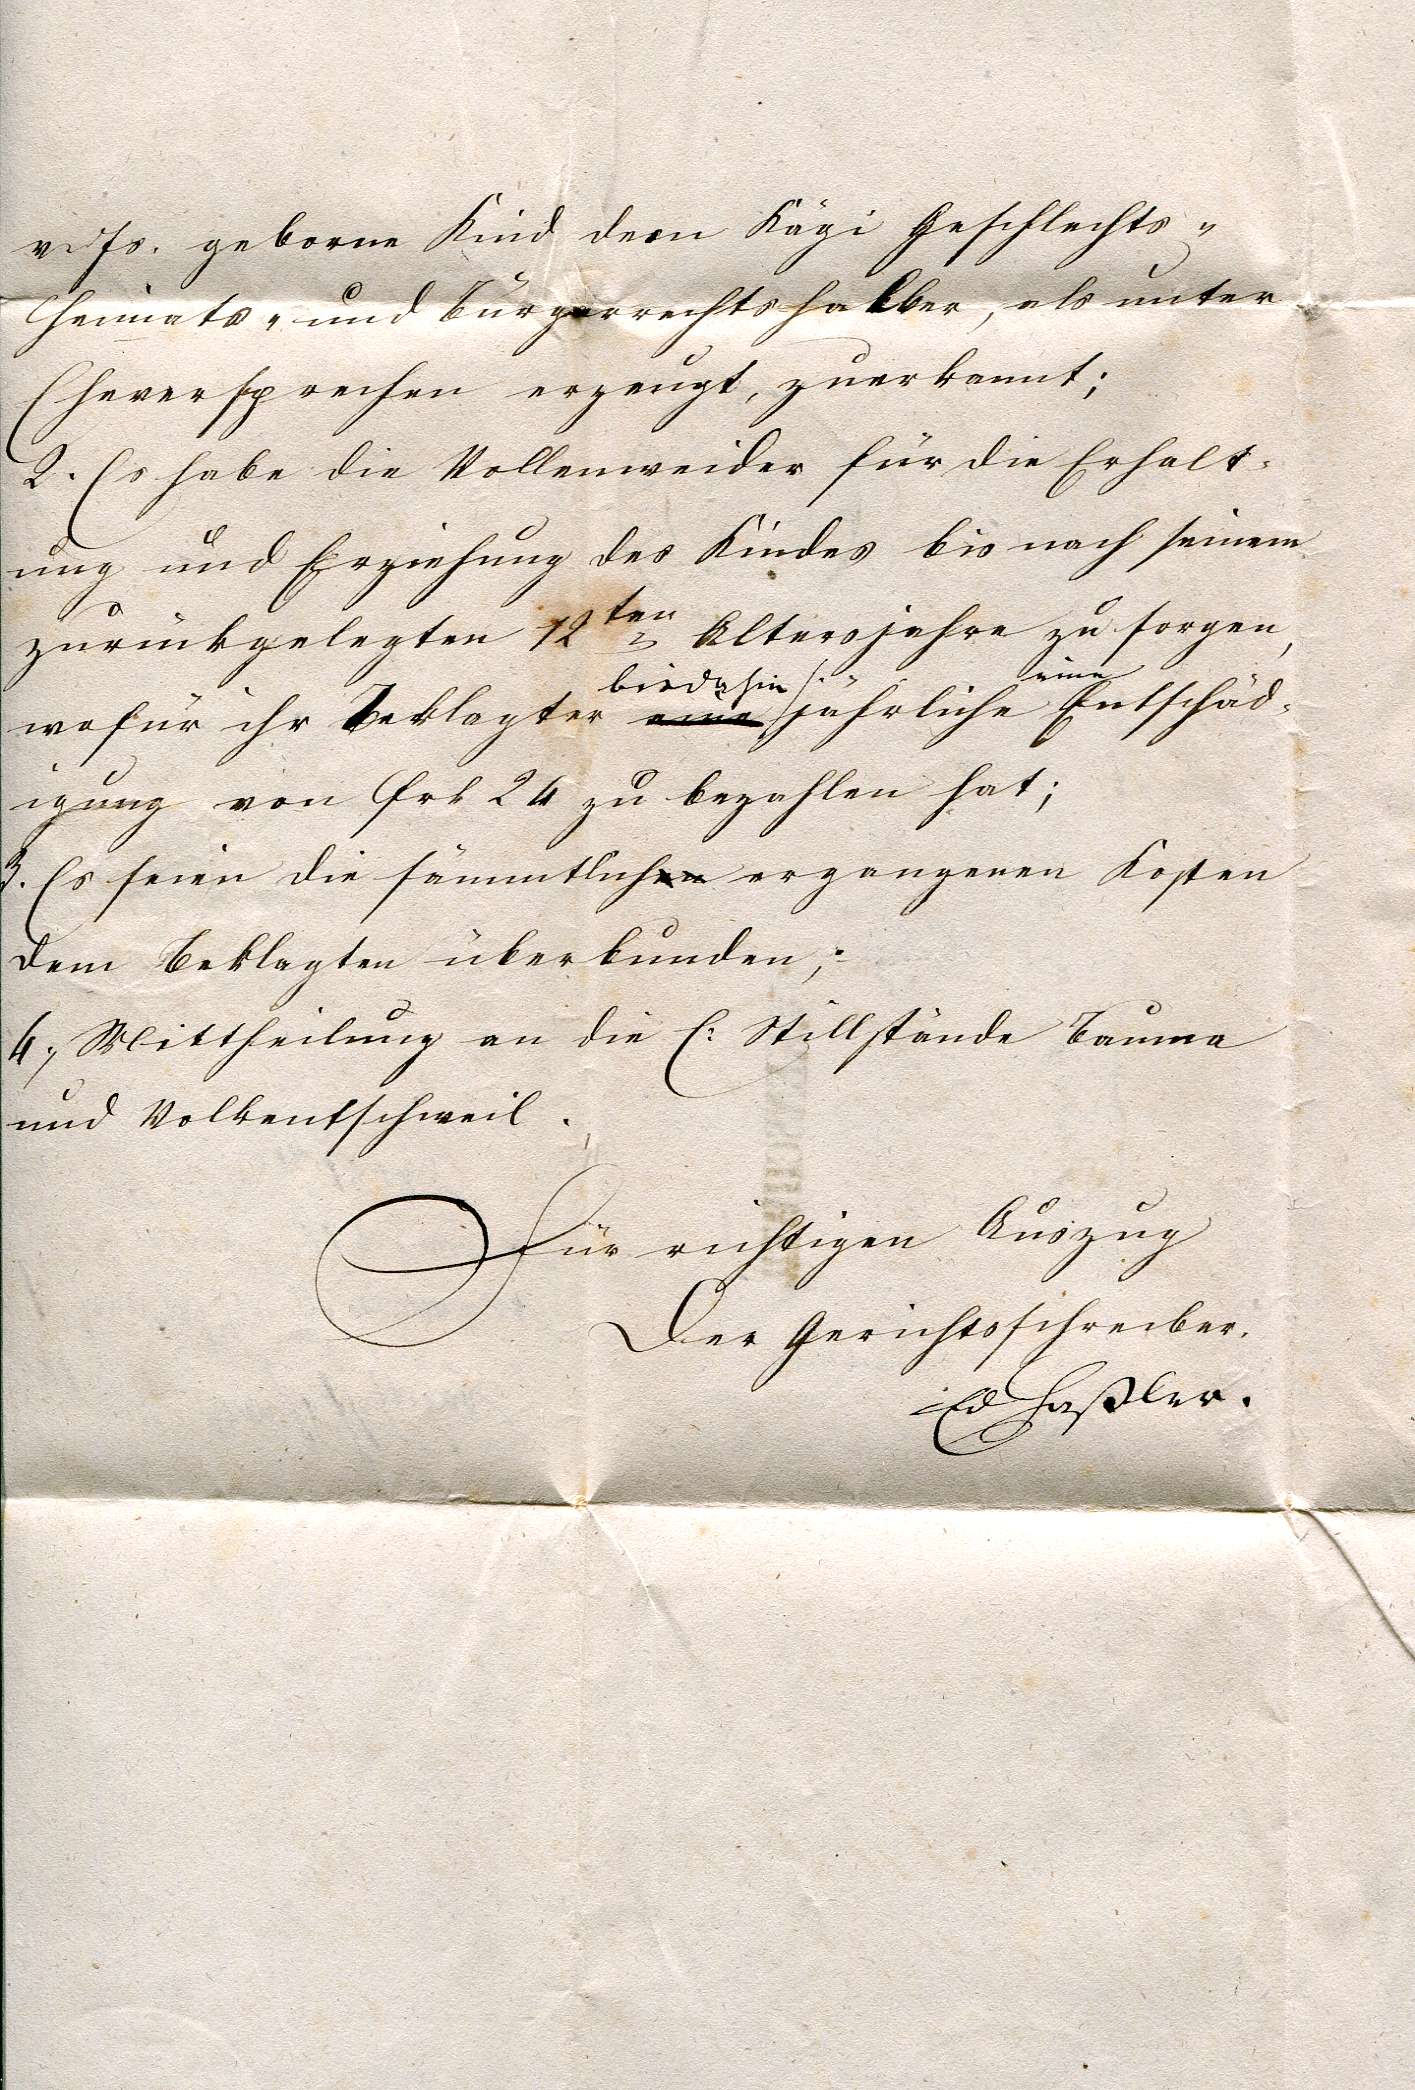 v. Js. geborne Kind dem Kägi Geschlechts-
Heimats- und Bürgerrechtshalber, als unter
Eheversprechen erzeugt, zuerkannt;
2. Es habe die Vollenweider für die Erhalt-
ung und Erziehung des Kindes bis nach seinem
zurückgelegten 12ten Altersjahre zu sorgen,
wofür ihr Beklagter bisdahin jährliche eine Entschäd-
igung von Frk 24 zu bezahlen hat;
3. Es seien die sämmtlich ergangenen Kosten
dem Beklagten überbunden;
4, Mittheilung an die E. Stillstände Bauma
und Volkentschweil.
Für richtigen Auszug
Der Gerichtsschreiber.
Ed Haßler.